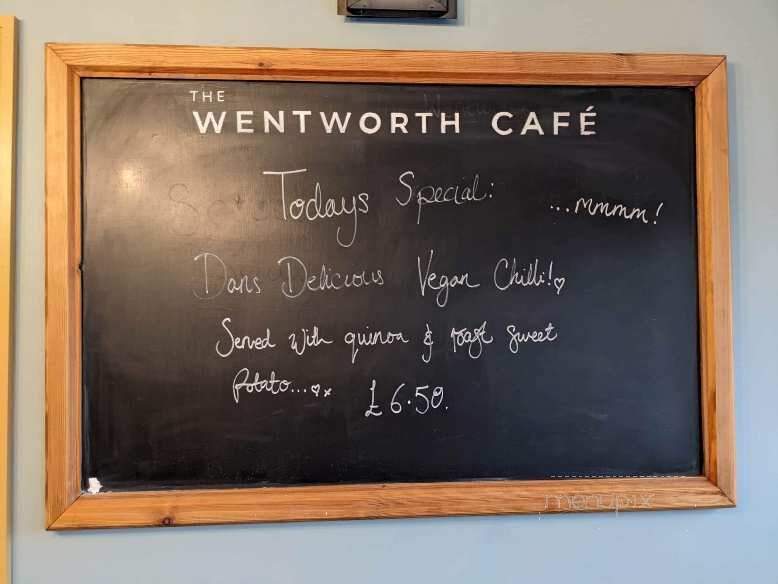 THE
WENTWORTH CAFÉ
Todays Special:
...mmmm!
Dans Delicious Vegan Chilli!♡
Served with quinoa & roast sweet
potato...♡x
£6.50.
menupix